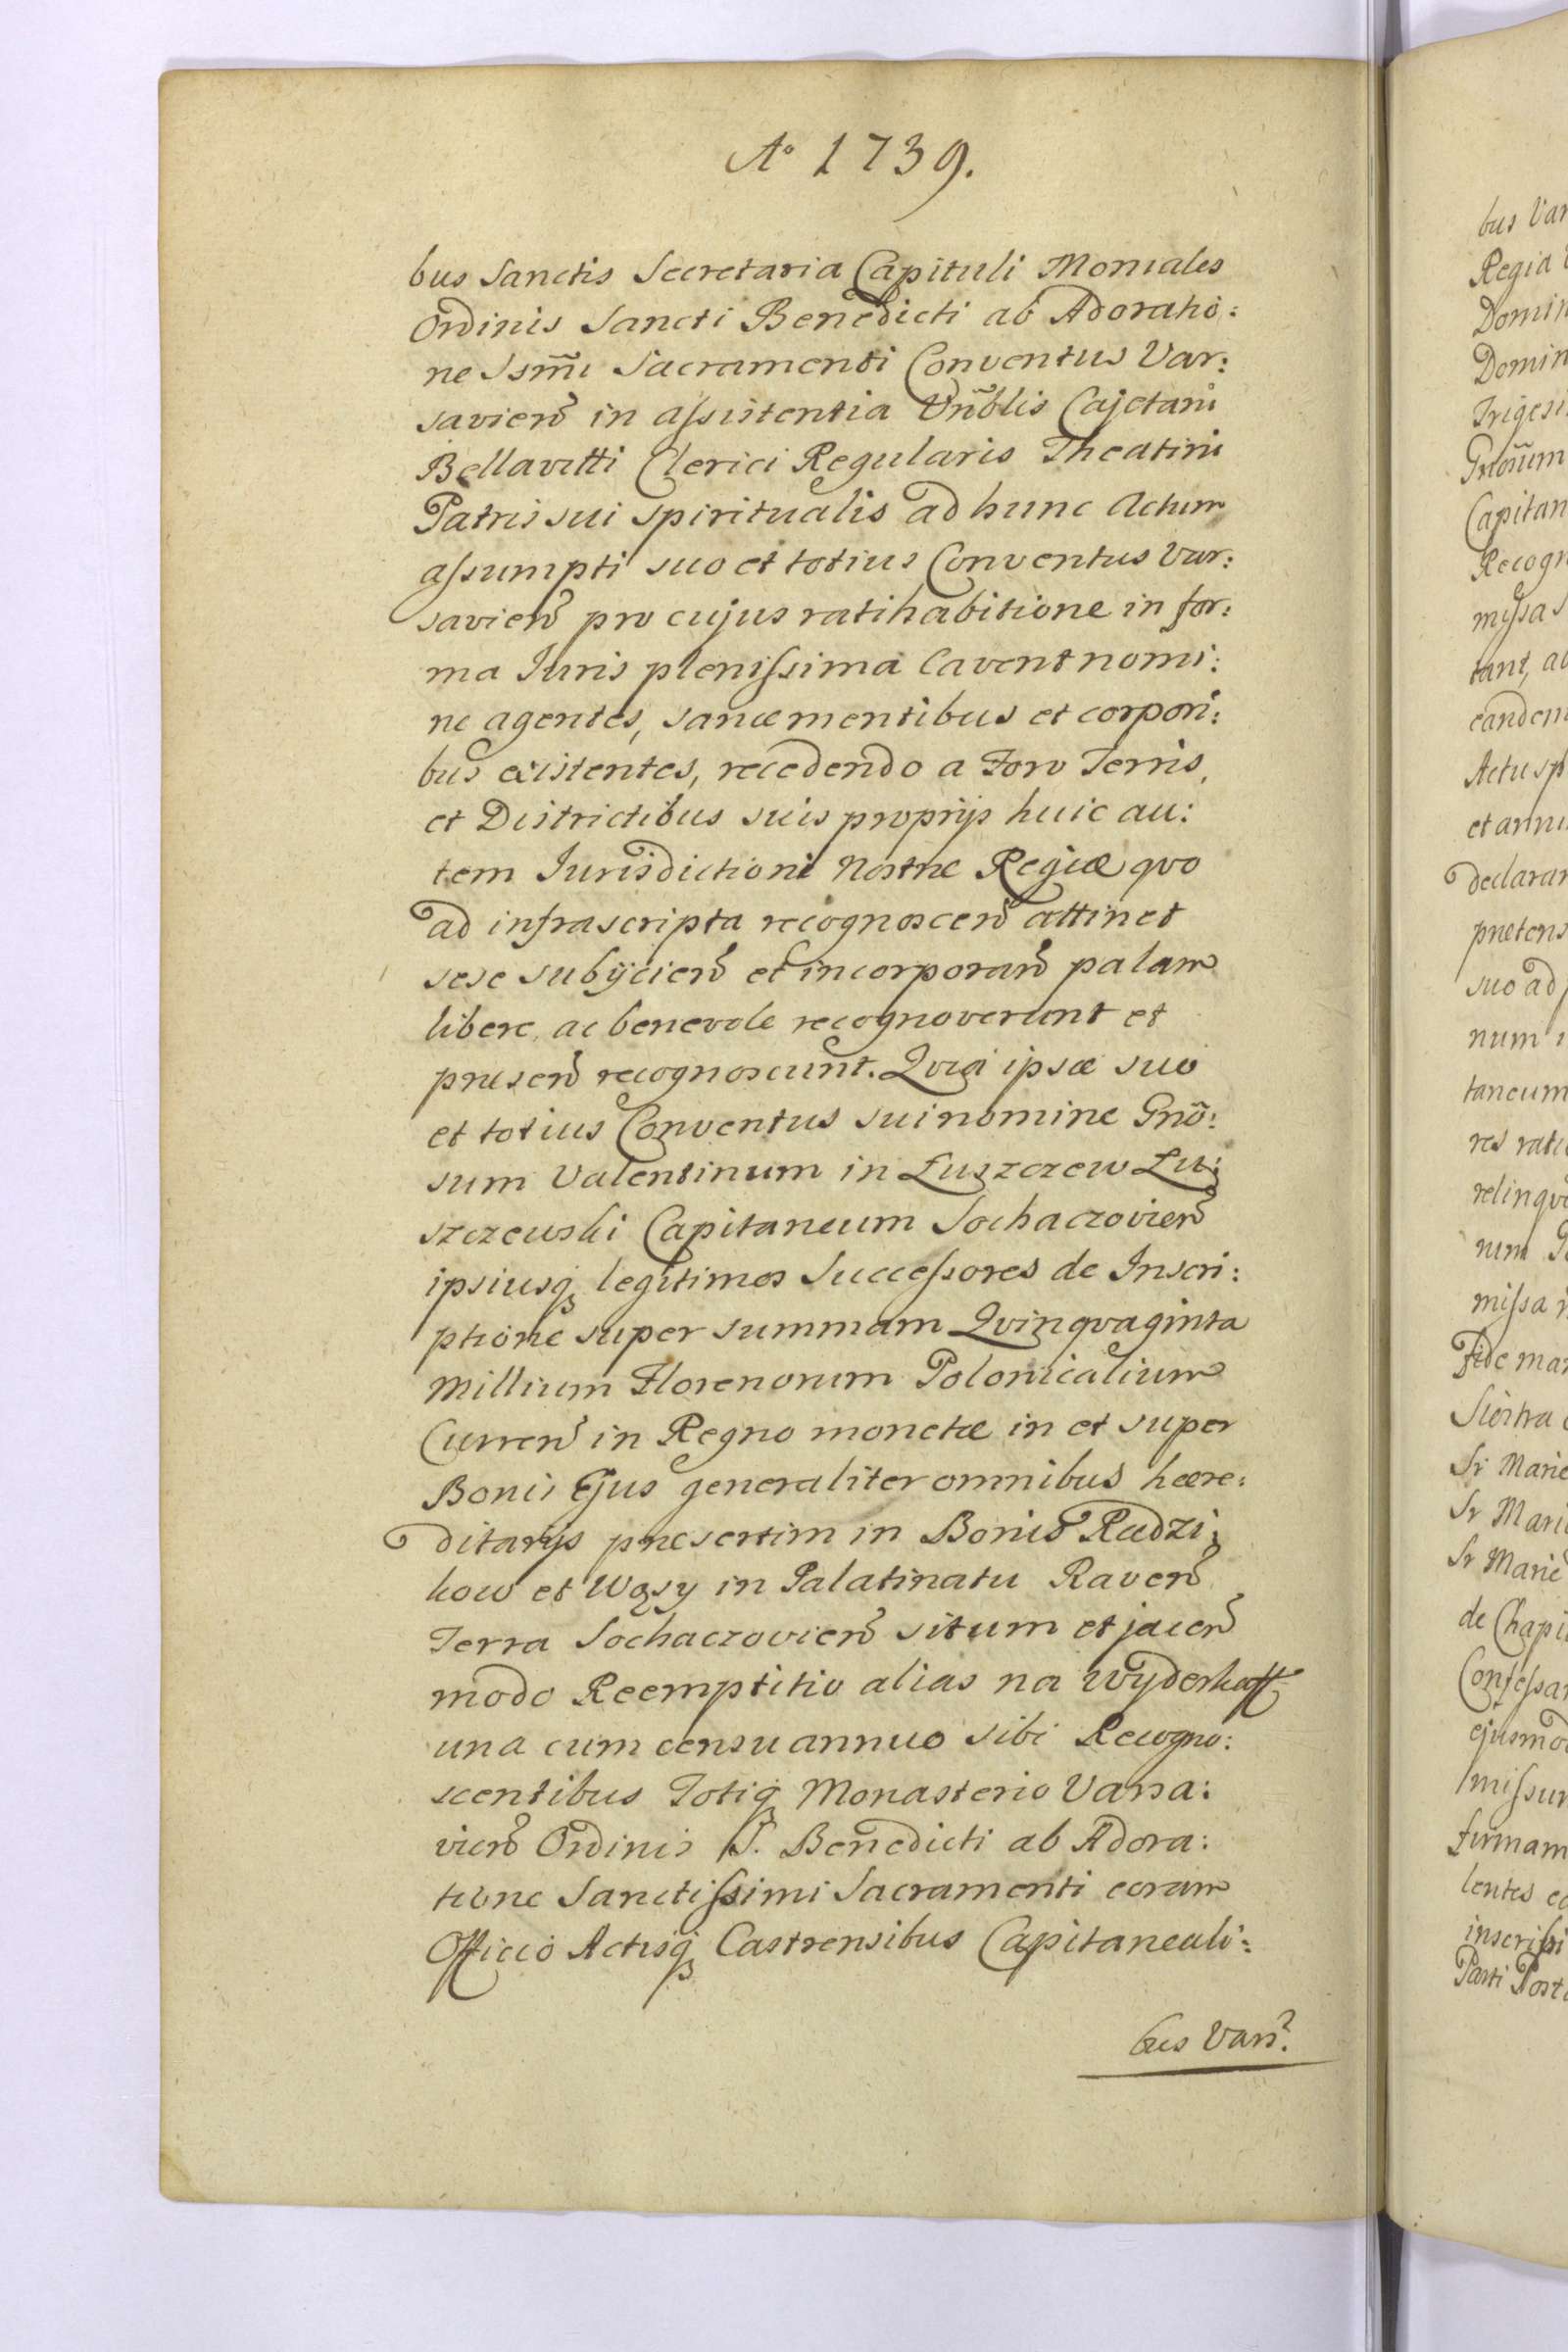 Aº 1739.
bus Sanctis Secretaria Capituli Moniales
Ordinis Sancti Benedicti ab Adoratio:
ne Ssm̃i Sacramenti Conventus Var:
savien̄ in assistentia Vñblis Cajetani
Bellavitti Clerici Regularis Theatini
Patris sui spiritualis ad hunc Actum
assumpti suo et totius Conventus Var:
savien̄ pro cujus ratihabitione in for:
ma Juris plenissima Cavent nomi:
ne agentes, sanæ mentibus et corpori:
bus existentes, recedendo a Foro Terris,
et Districtibus suis proprijs huic au:
tem Jurisdictioni Nostræ Regiæ quo
ad infrascripta recognoscen̄ attinet
sese subijcien̄ et incorporan̄ palam
libere, ac benevole recognoverunt et
præsen̄ recognoscunt. Quia ipsæ suo
et totius Conventus sui nomine Gnõ:
sum Valentinum in Łuszczew Łu:
szczewski Capitaneum Sochaczovien̄
ipsiusq₃ legitimos Successores de Inscri:
ptione super summam Quinquaginta
Millium Florenorum Polonicalium
Curren̄ in Regno monetæ in et super
Bonis Ejus generaliter omnibus hære:
ditarijs præsertim in Bonis Radzi:
kow et Wąsy in Palatinatu Raven̄
Terra Sochaczovien̄ situm et jacen̄
modo Reemptitio alias na Wyderkaff
una cum censu annuo sibi Recogno:
scentibus Totiq₃ Monasterio Varsa:
vien̄ Ordinis S. Benedicti ab Adora:
tione Sanctissimi Sacramenti coram
Officio Actisq₃ Castrensibus Capitaneali:
bus Vars:
bus Var
Regia
Domin
Domin
Trigesi
Gnõrum
Capitan
Recogn
missa
tant, ac
eandem
Actu sp
et annu
declaran
prætens
suo ad
num
taneum
res
relinqv
num
missa
fide man
Siostra
Sr Marie
Sr Marie
Sr Marie
de Chapi
Confessar
ejusmod
missum
firmam
lentes
inscripti
Parti Post